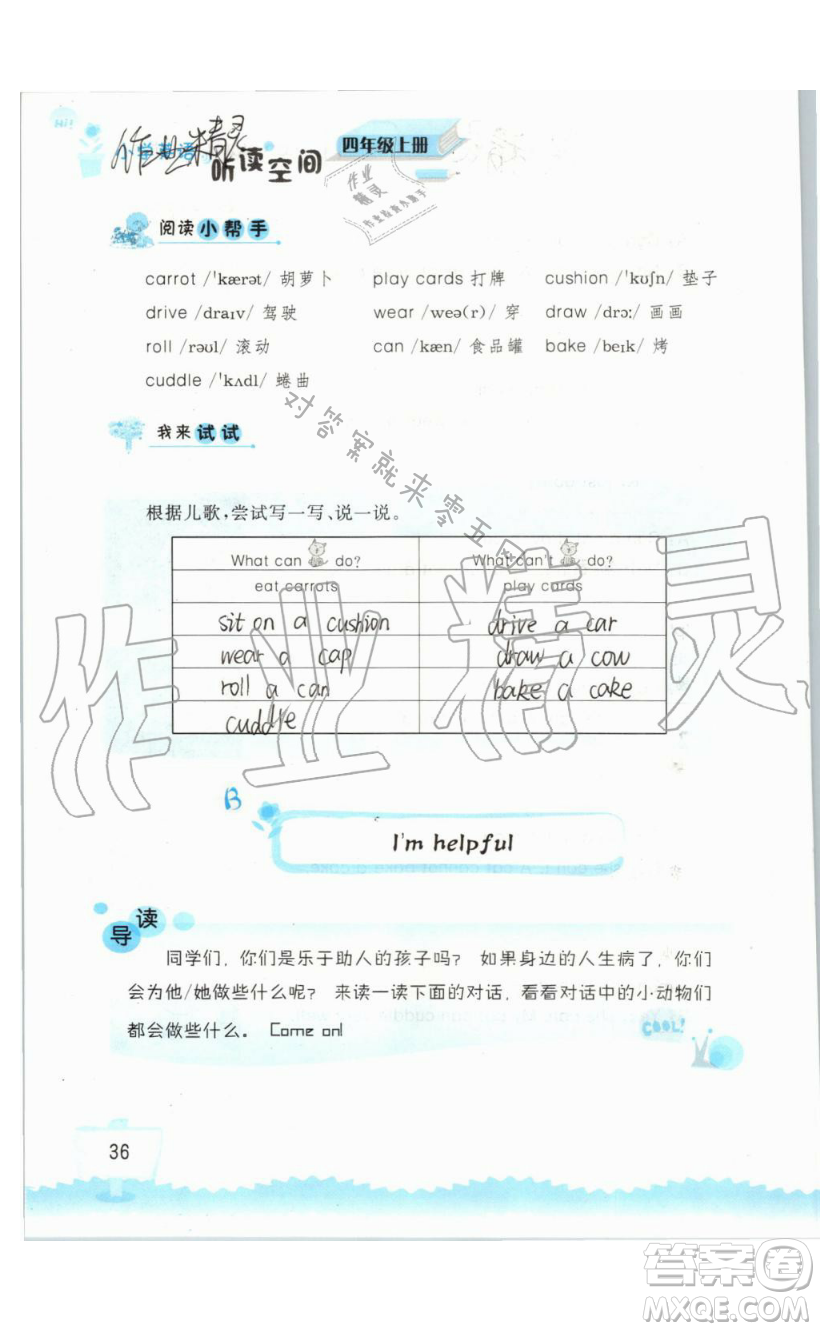 Hi!
作业精灵
小学英语
听读空间
四年级上册
作业
精灵
阅读小帮手
carrot /ˈkærət/ 胡萝卜 play cards 打牌 cushion /ˈkʊʃn/ 垫子
drive /draɪv/ 驾驶 wear /weə(r)/ 穿 draw /drɔː/ 画画
roll /rəʊl/ 滚动 can /kæn/ 食品罐 bake /beɪk/ 烤
cuddle /ˈkʌdl/ 蜷曲
对答案就来零五
我来试试
根据儿歌,尝试写一写、说一说。
What can do? What can't do?
eat carrots play cards
sit on a cushion drive a car
wear a cap draw a cow
roll a can bake a cake
cuddle
作业精灵
B
I'm helpful
导读
同学们,你们是乐于助人的孩子吗? 如果身边的人生病了,你们
会为他/她做些什么呢? 来读一读下面的对话,看看对话中的小动物们
都会做些什么。 Come on!
COOL!
36
答案圈
MXQE.COM